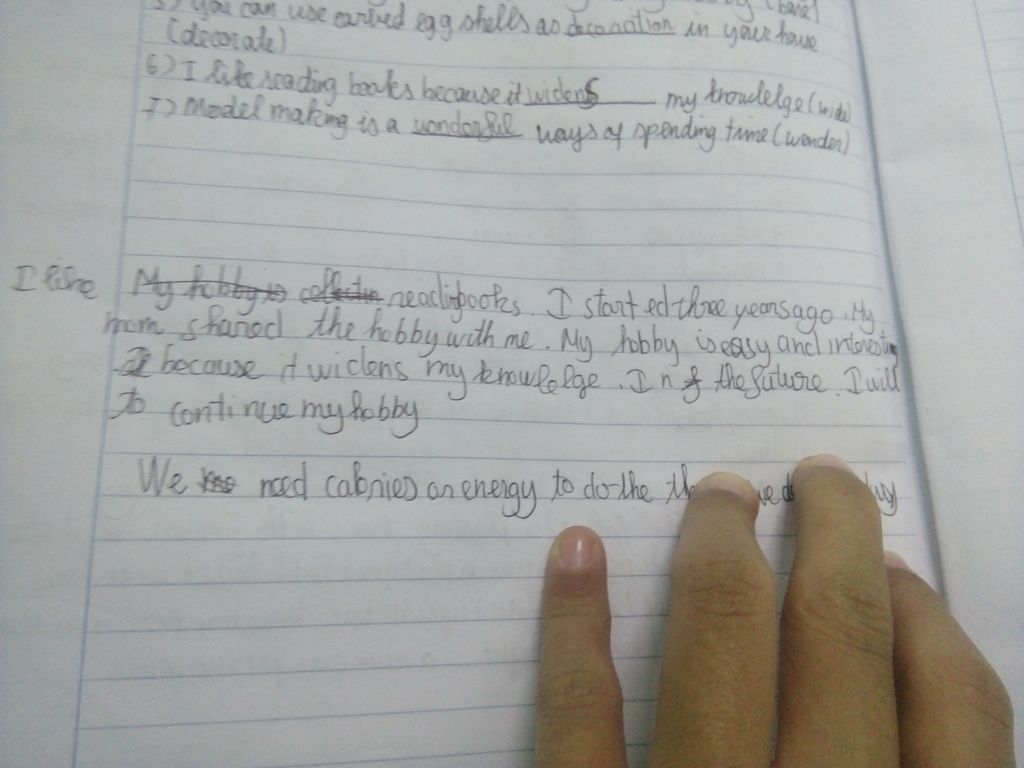 5) You can use carved egg shells as decoration in your house
(decorate)
6) I like reading books because it widens my knowlelge (wide)
7) Model making is a wonderful ways of spending time (wonder)
I like My hobby is collectin reading books. I started three years ago. My
mom shared the hobby with me. My hobby is easy and interesting
because it widens my knowlelge. In the future. I will
to continue my hobby
We need calories or energy to do the